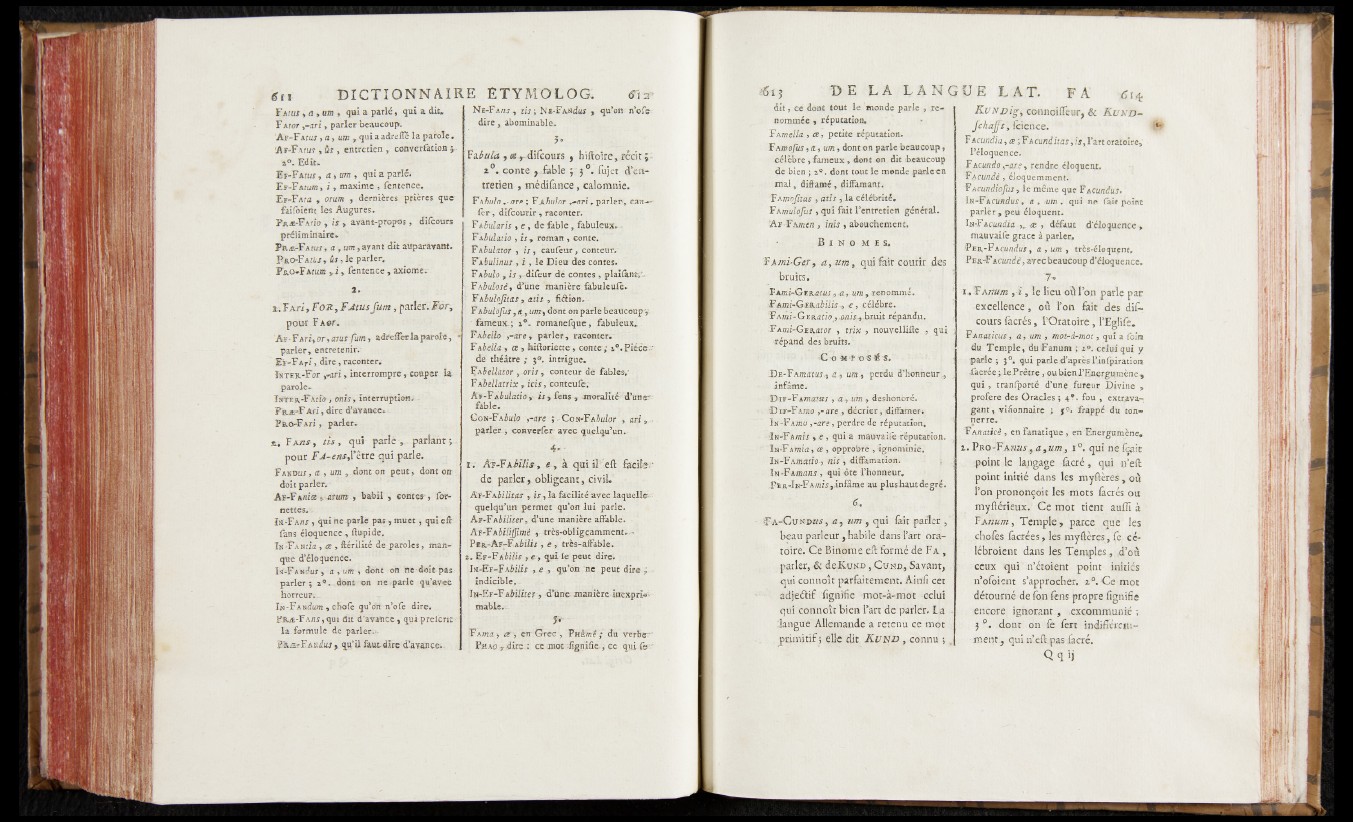 611 DICTIONNAIRE ÉTYMOLOG. 612
FAtus, a, um, qui a parlé, qui a dit.
FAtor,-ari, parler beaucoup.
AF-FAtus, a, um, qui a adreſſé la parole.
AF-FAtus, ûs, entretien, converſation;
2°. Edit.
EF-FAtus, a, um, qui a parlé.
EF-FAtum, i, maxime, ſentence.
EF-FAta, orum, dernières prières que
faiſoient les Augures.
PRÆ-FAtio, is, avant-propos, diſcours
préliminaire.
PRÆ-FAtus, a, um, ayant dit auparavant.
PRO-FAtus, ûs, le parler.
PRO-FAtum, i, ſentence, axiome.
2.
1. FAri, FOR, FAtus ſum, parler. For,
pour FAor.
AF-FAri, or, atus ſum, adreſſer la parole,
parler, entretenir.
EF-FAri, dire, raconter.
INTER-For,-ari, interrompre, couper la
parole.
INTER-FAtio, onis, interruption.
PRÆ-FAri, dire d'avance.
PRO-FAri, parler.
2. FAns, tis, qui parle, parlant;
pour FA-ens, l'être qui parle.
FANDus, a, um, dont on peut, dont on
doit parler.
AF-FAniæ, arum, babil, contes, ſornettes.
IN-FAns, qui ne parle pas, muet, qui eſt
ſans éloquence, ſtupide.
IN-FAntia, æ, ſtérilité de paroles, manque
d'éloquence.
IN-FANdus, a, um, dont on ne doit pas
parler; 2°. dont on ne parle qu'avec
horreur.
IN-FANdum, choſe qu'on n'oſe dire.
PRÆ-FAns, qui dit d'avance, qui preſcrit
la formule de parler.
PRÆ-FANdus, qu'il faut dire d'avance.
NE-FAns, tis; NE-FANdus, qu'on n'oſe
dire, abominable.
3.
FAbula, æ, diſcours, hiſtoire, récit;
2°. conte, fable; 3°. ſujet d'entretien,
médiſance, calomnie.
FAbulo,-are; FAbulor,-ari, parler, cauſer,
diſcourir, raconter.
FAbularis, e, de fable, fabuleux.
FAbulatio, is, roman, conte.
FAbulator, is, cauſeur, conteur.
FAbulinus, i, le Dieu des contes.
FAbulo, is, diſeur de contes, plaiſant.
FAbulosé, d'une manière fabuleuſe.
FAbuloſitas, atis, fiction.
FAbuloſus, a, um, dont on parle beaucoup;
fameux; 2°. romaneſque, fabuleux.
FAbello,-are, parler, raconter.
FAbella, æ, hiſtoriette, conte; 2°. Piéce
de théâtre; 3°. intrigue.
FAbellator, oris, conteur de fables.
FAbellatrix, icis, conteuſe.
AF-FAbulatio, is, ſens, moralité d'une
fable.
CON-FAbulo,-are; CON-FAbulor, ari,
parler, converſer avec quelqu'un.
4.
1. AF-FAbilis, e, à qui il eſt facile
de parler, obligeant, civil.
AF-FAbilitas, is, la facilité avec laquelle
quelqu'un permet qu'on lui parle.
AF-FAbiliter, d'une manière affable.
AF-FAbiliſſimè, très-obligeamment.
PER-AF-FAbilis, e, très-affable.
2. EF-FAbilis, e, qui ſe peut dire.
IN-EF-FAbilis, e, qu'on ne peut dire,
indicible.
IN-EF-FAbiliter, d'une manière inexprimable.
5.
FAma, æ, en Grec, PHêmê; du verbe
PHAO, dire: ce mot ſignifie, ce qui ſe
613 DE LA LANGUE LAT. FA 614
dit, ce dont tout le monde parle, renommée,
réputation.
FAmella, æ, petite réputation.
FAmoſus, a, um, dont on parle beaucoup,
célèbre, fameux, dont on dit beaucoup
de bien; 2°. dont tout le monde parle en
mal, diffamé, diffamant.
FAmoſitas, atis, la célébrité.
FAmuloſus, qui fait l'entretien général.
AF-FAmen, inis, abouchement.
BINOMES.
FAmi-Ger, a, um, qui fait courir des
bruits.
FAmi-GERatus, a, um, renommé.
FAmi-GERabilis, e, célébre.
FAmi-GERatio, onis, bruit répandu.
FAmi-GERator, trix, nouvelliſte, qui
répand des bruits.
COMPOSÉS.
DE-FAmatus, a, um, perdu d'honneur,
infâme.
DIF-FAmatus, a, um, deshonoré.
DIF-FAmo,-are, décrier, diffamer.
IN-FAmo,-are, perdre de réputation.
IN-FAmis, e, qui a mauvaiſe réputation.
IN-FAmia, æ, opprobre, ignominie.
IN-FAmatio, nis, diffamation.
IN-FAmans, qui ôte l'honneur.
PER-IN-FAmis, infâme au plus haut degré.
6.
FA-CUNDus, a, um, qui fait parler,
beau parleur, habile dans l'art oratoire.
Ce Binome eſt formé de FA,
parler, & de KUND, CUND, Savant,
qui connoît parfaitement. Ainſi cet
adjectif ſignifie mot-à-mot celui
qui connoît bien l'art de parler. La
langue Allemande a retenu ce mot
primitif; elle dit KUND, connu;
KUNDig, connoiſſeur, & KUND-
ſchafft, ſcience.
FAcundia, æ; FAcunditas, is, l'art oratoire,
l'éloquence.
FAcundo,-are, rendre éloquent.
FAcundé, éloquemment.
FAcundioſus, le même que FAcundus.
IN-FAcundus, a, um, qui ne ſait point
parler, peu éloquent.
IN-FAcundia, æ, défaut d'éloquence,
mauvaiſe grace à parler.
PER-FAcundus, a, um, très-éloquent.
PER-FAcundé, avec beaucoup d'éloquence.
7.
1. FAnum, i, le lieu où l'on parle par
excellence, où l'on fait des diſcours
ſacrés, l'Oratoire, l'Egliſe.
FAnaticus, a, um, mot-à-mot, qui a ſoin
du Temple, du Fanum; 2°. celui qui y
parle; 3°. qui parle d'après l'inſpiration
ſacrée; le Prêtre, ou bien l'Energumène,
qui, tranſporté d'une fureur Divine,
profere des Oracles; 4°. fou, extravagant,
viſionnaire; 5°. frappé du tonnerre.
FAnaticé, en fanatique, en Energumène.
2. PRO-FANus, a, um, 1°. qui ne ſçait
point le langage ſacré, qui n'eſt
point initié dans les myſtères, où
l'on prononçoit les mots ſacrés ou
myſtérieux. Ce mot tient auſſi à
FAnum, Temple, parce que les
choſes ſacrées, les myſtères, ſe célébroient
dans les Temples, d'où
ceux qui n'étoient point initiés
n'oſoient s'approcher. 2°. Ce mot
détourné de ſon ſens propre ſignifie
encore ignorant, excommunié;
3°. dont on ſe ſert indifféremment,
qui n'eſt pas ſacré.
Q q ij